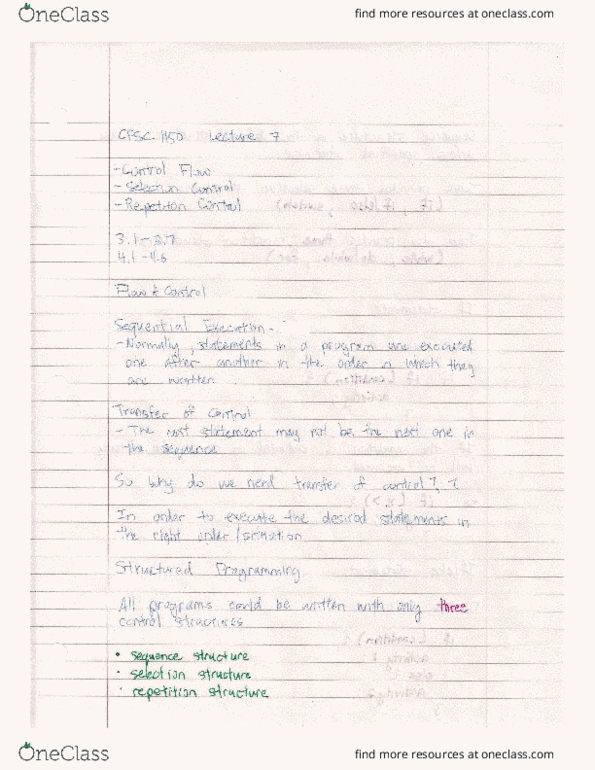 OneClass
find more resources at oneclass.com
CPSC 1150 Lecture 7
- Control Flow
- Selection Control
- Repetition Control
3.1 - 3.7
4.1 - 4.6
Flow of Control
Sequential Execution -
- Normally, statements in a program are executed
one after another in the order in which they
are written
Transfer of control
- The next statement may not be the next one in
the sequence
So why do we need transfer of control?
In order to execute the desired statements in
the right order /
Structured Programming
All programs could be written with only three
control structures
• sequence structure
• selection structure
• repetition structure
OneClass
find more resources at oneclass.com